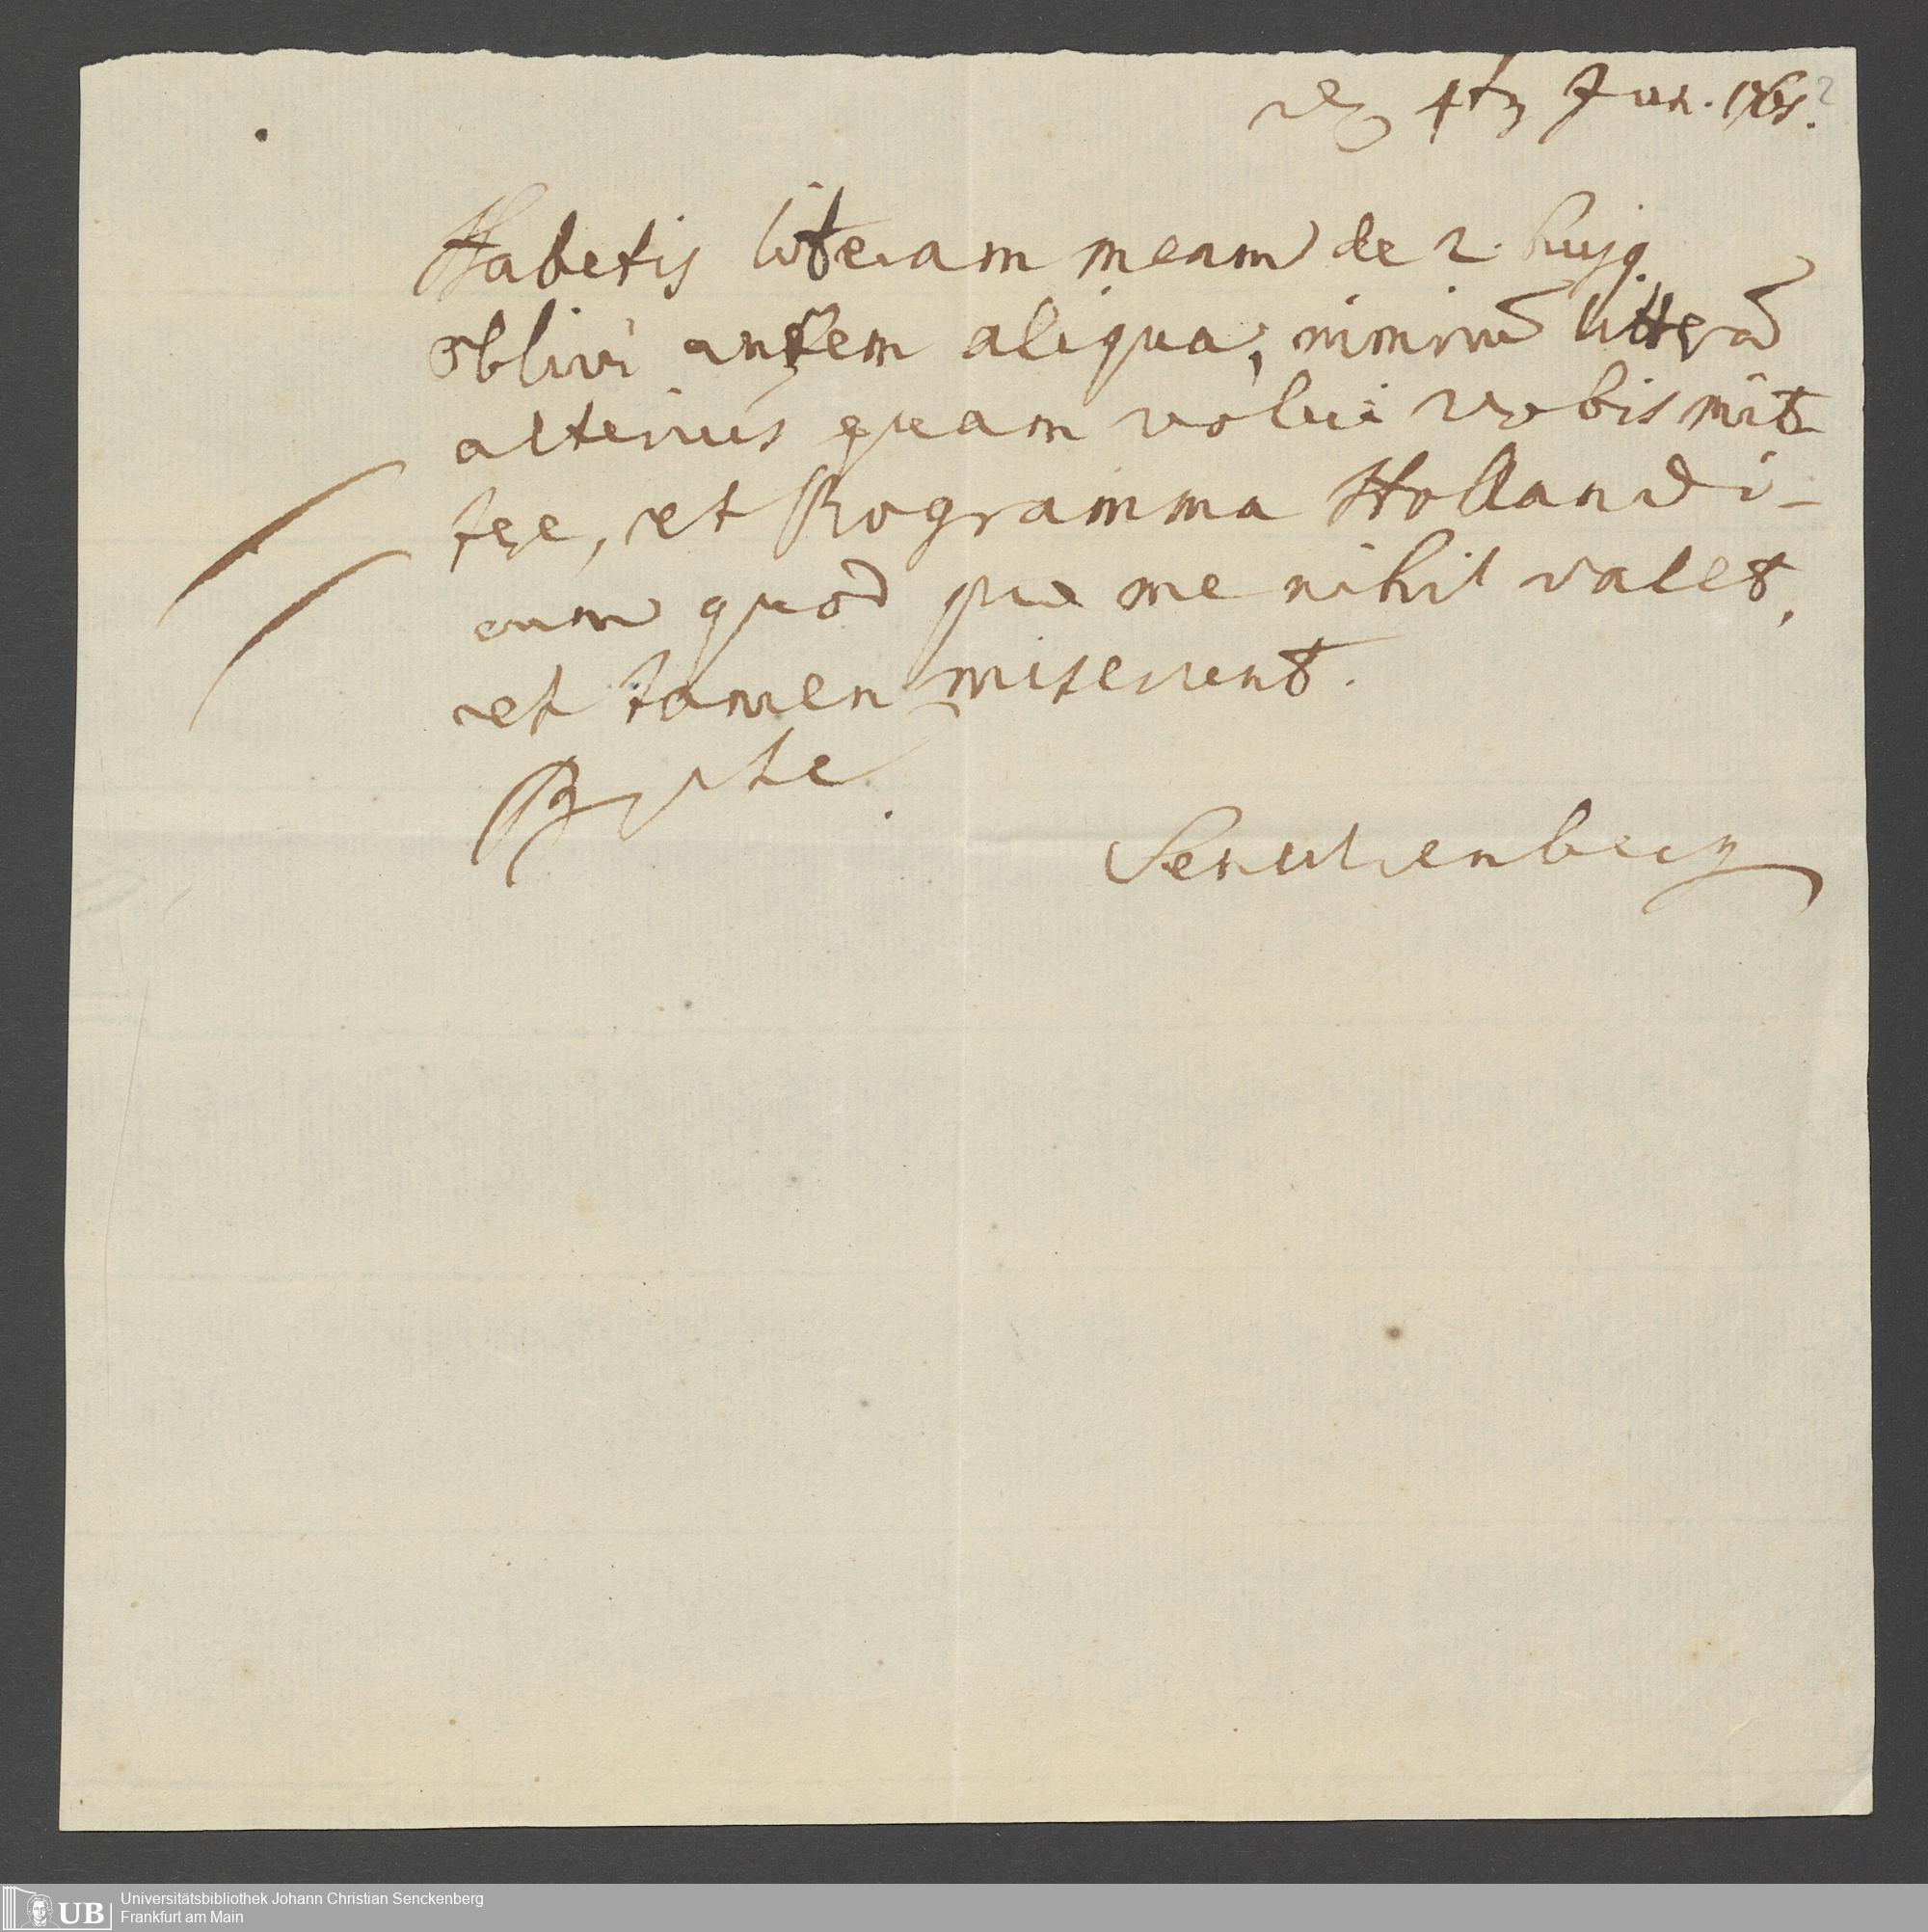 4t Jun. 1765.
Habetis literam meam de 2. hujq
oblivi autem aliqua, nimirū litterā
alterius quam volui vobis mit-
tere, et Programma Hollandi-
cum quod pro me nihil valet,
et tamen miserunt.
Senckenberg
UB
Universitätsbibliothek Johann Christian Senckenberg
Frankfurt am Main